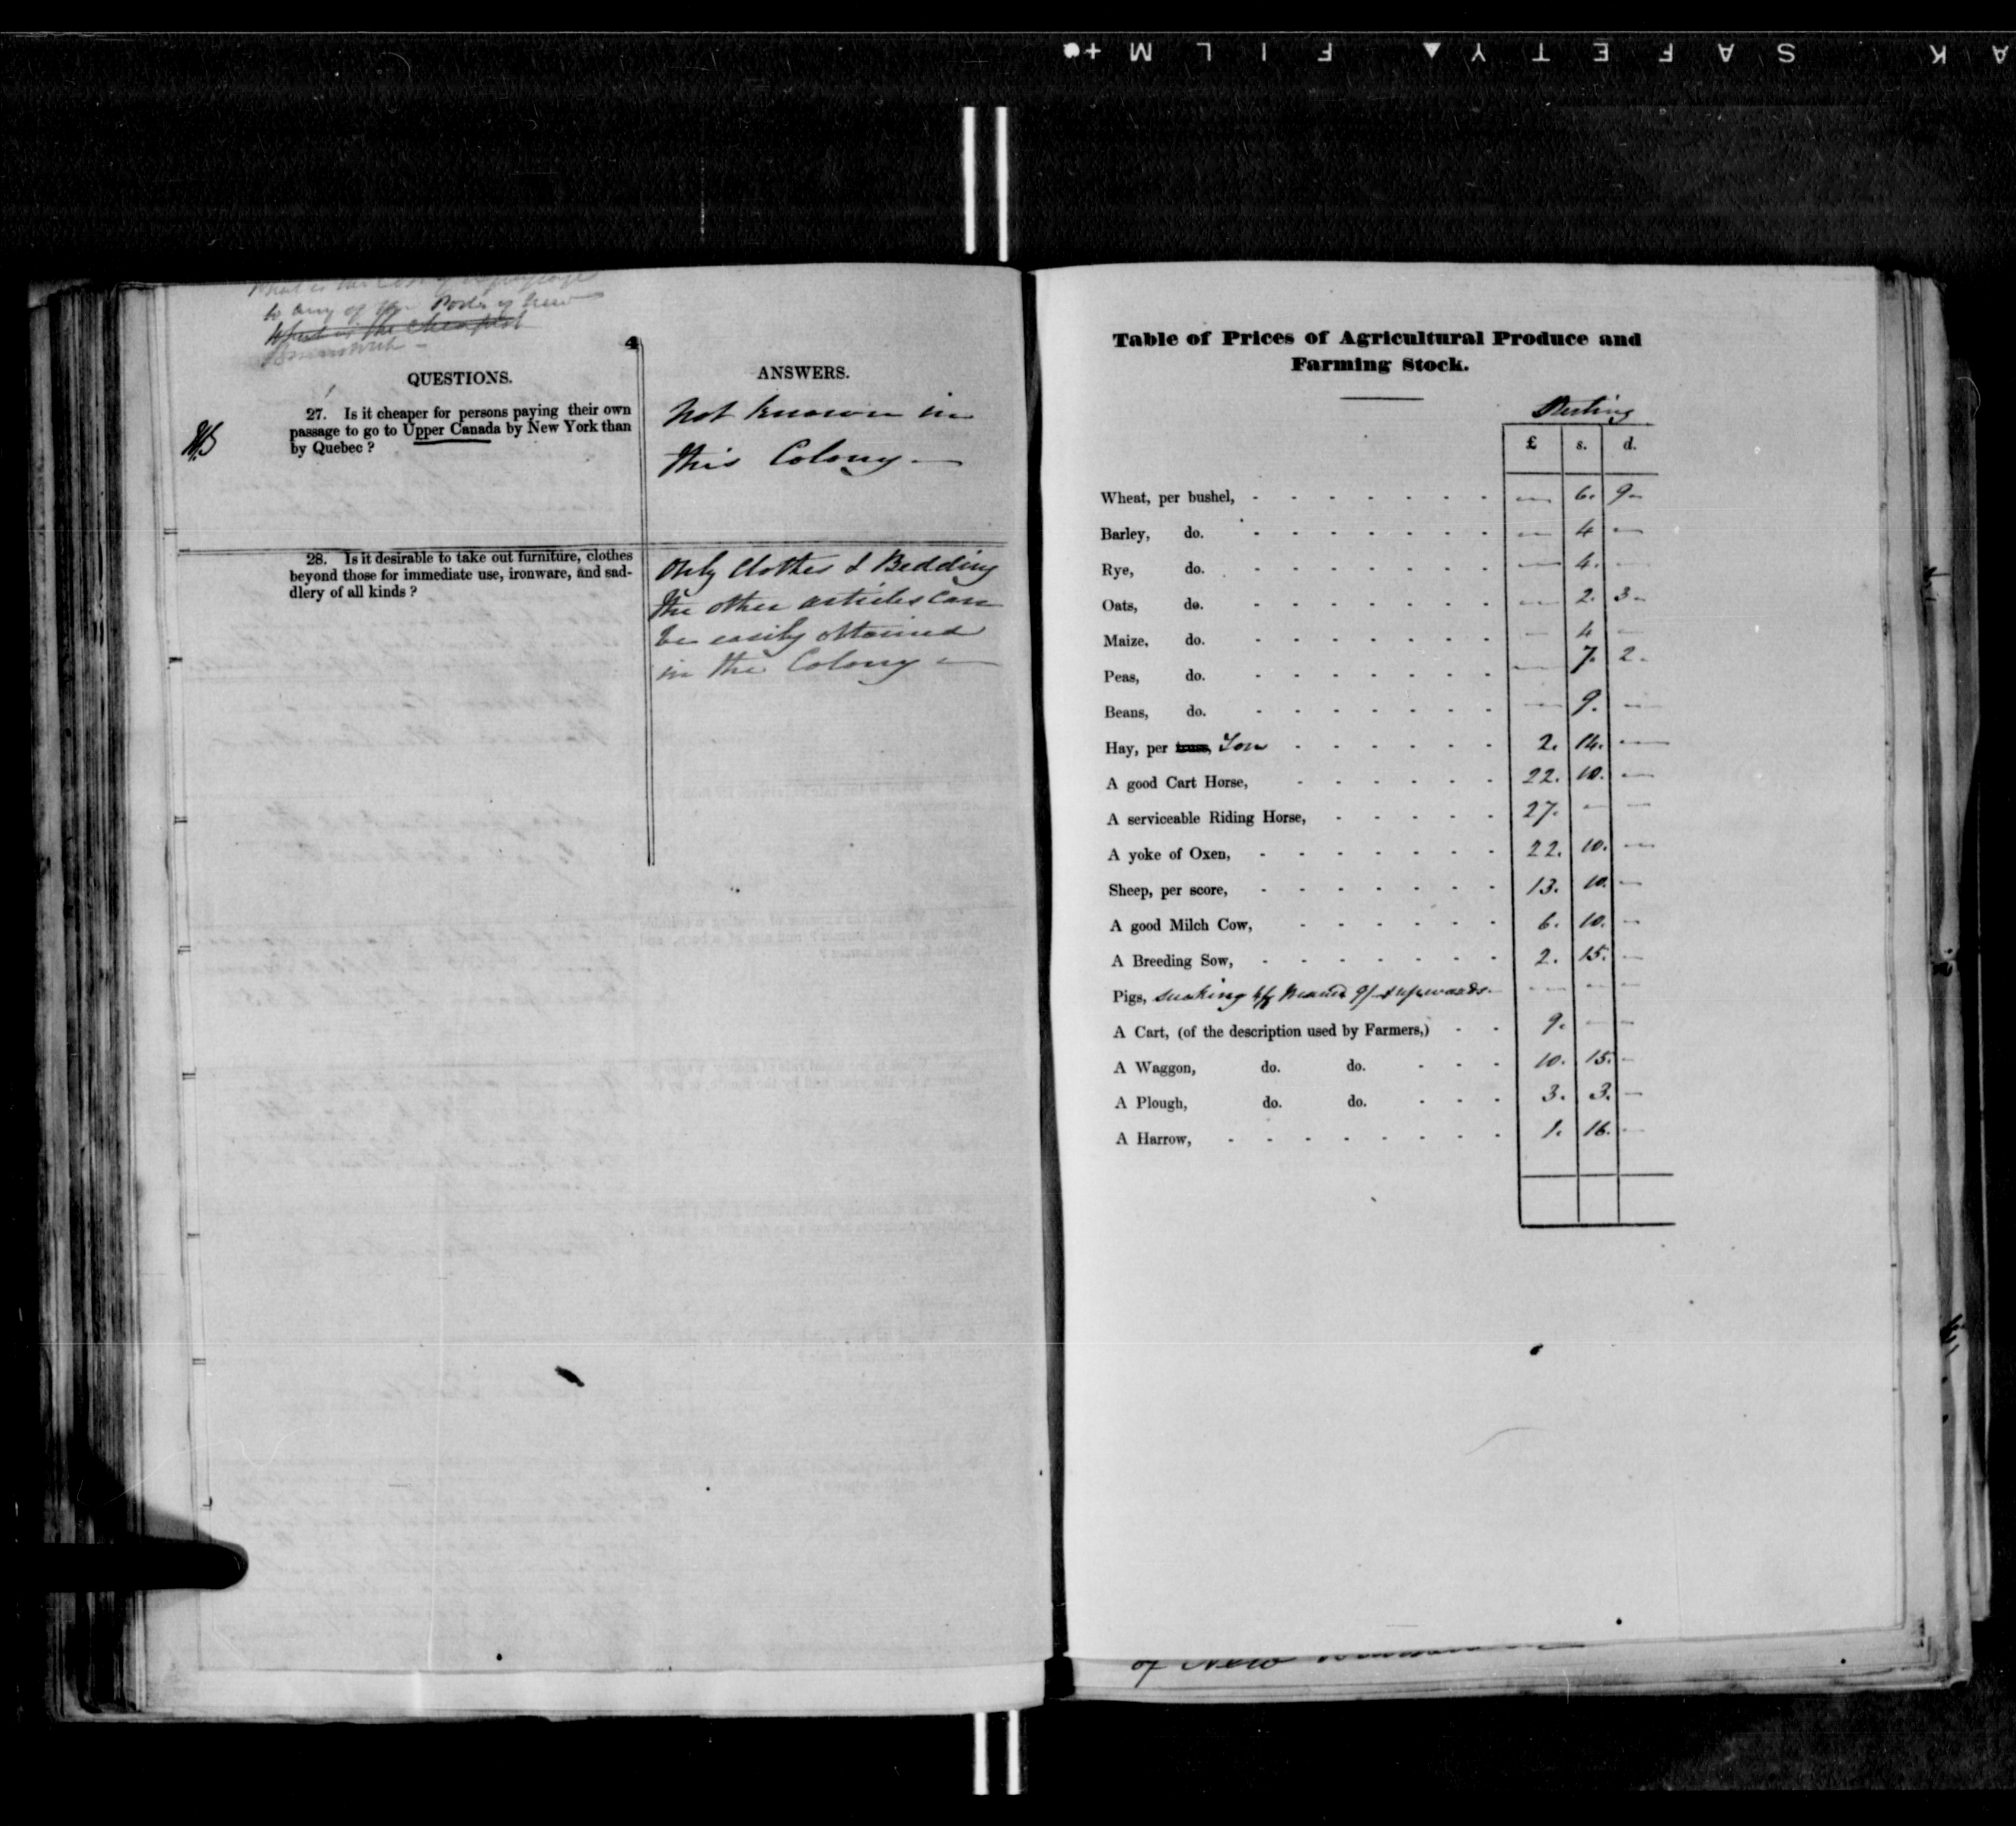 SAFETY ▲ FILM
What is the Cost of a passage
to any of the Ports of New
What is the cheapest
Brunswick -
4
QUESTIONS.
27. Is it cheaper for persons paying their own
passage to go to Upper Canada by New York than
by Quebec ?
28. Is it desirable to take out furniture, clothes
beyond those for immediate use, ironware, and sad-
dlery of all kinds ?
ANSWERS.
Not known in
this Colony —
Only Clothes & Bedding
the other articles can
be easily obtained
in the Colony —
Table of Prices of Agricultural Produce and
Farming Stock.
Sterling
£ s. d.
Wheat, per bushel, - - - - - - - — 6. 9-
Barley, do. - - - - - - - — 4 —
Rye, do. - - - - - - - — 4. —
Oats, do. - - - - - - - — 2. 3-
Maize, do. - - - - - - - — 4 —
Peas, do. - - - - - - - — 7. 2-
Beans, do. - - - - - - - — 9. —
Hay, per truss, Ton - - - - - - 2. 14. —
A good Cart Horse, - - - - - - 22. 10. —
A serviceable Riding Horse, - - - - - 27. — —
A yoke of Oxen, - - - - - - - 22. 10. —
Sheep, per score, - - - - - - - 13. 10. —
A good Milch Cow, - - - - - - 6. 10. —
A Breeding Sow, - - - - - - - 2. 15. —
Pigs, sucking 4/6 Weaned 9/- & upwards — — — —
A Cart, (of the description used by Farmers,) - - 9. — —
A Waggon, do. do. - - - 10. 15. —
A Plough, do. do. - - - 3. 3. —
A Harrow, - - - - - - - - 1. 16. —
of New